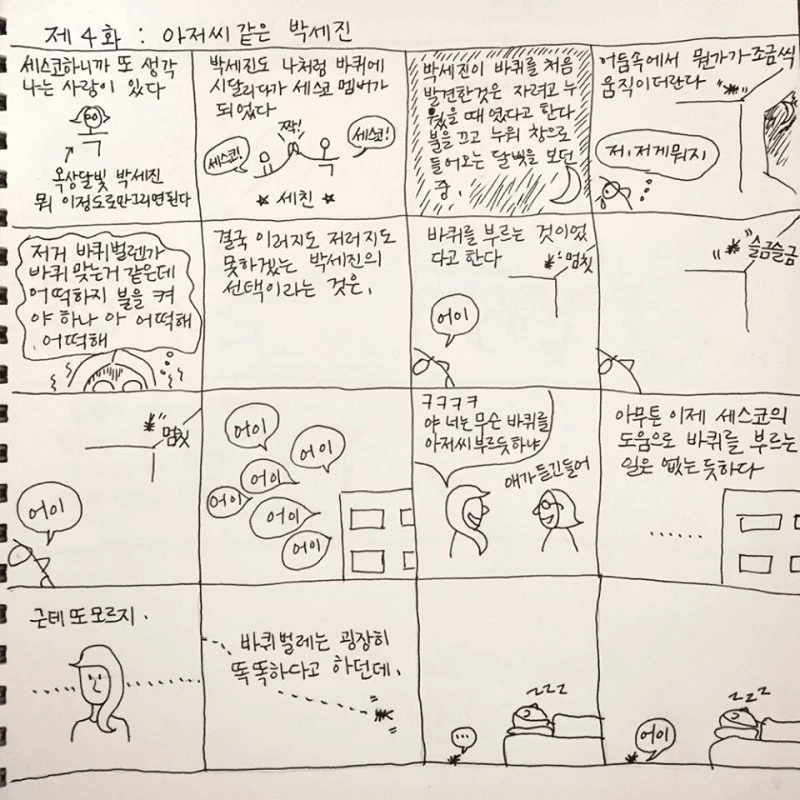 제 4화 : 아저씨 같은 박세진
세스코하니까 또 생각
나는 사람이 있다
옥상달빛 박세진
뭐 이정도로만 그리면 된다
박세진도 나처럼 바퀴에
시달리다가 세스코 멤버가
되었다
짝!
세스코!
세스코!
★ 세친 ★
박세진이 바퀴를 처음
발견한것은 자려고 누
웠을 때 였다고 한다
불을 끄고 누워 창으로
들어오는 달빛을 보던
중.
어둠속에서 뭔가가 조금씩
움직이더란다
저, 저게뭐지
저거 바퀴벌렌가
바퀴 맞는거 같은데
어떡하지 불을 켜
야 하나 아 어떡해
어떡해
결국 이러지도 저러지도
못하겠는 박세진의
선택이라는 것은,
바퀴를 부르는 것이었
다고 한다
멈칫
어이
슬금슬금
멈칫
어이
어이
어이
어이
어이
어이
어이
ㅋㅋㅋㅋ
야 너는 무슨 바퀴를
아저씨 부르듯하냐
얘가 들긴들어
아무튼 이제 세스코의
도움으로 바퀴를 부르는
일은 없는듯하다
......
근데 또 모르지.
바퀴벌레는 굉장히
똑똑하다고 하던데.
...
zzz
어이
zzz